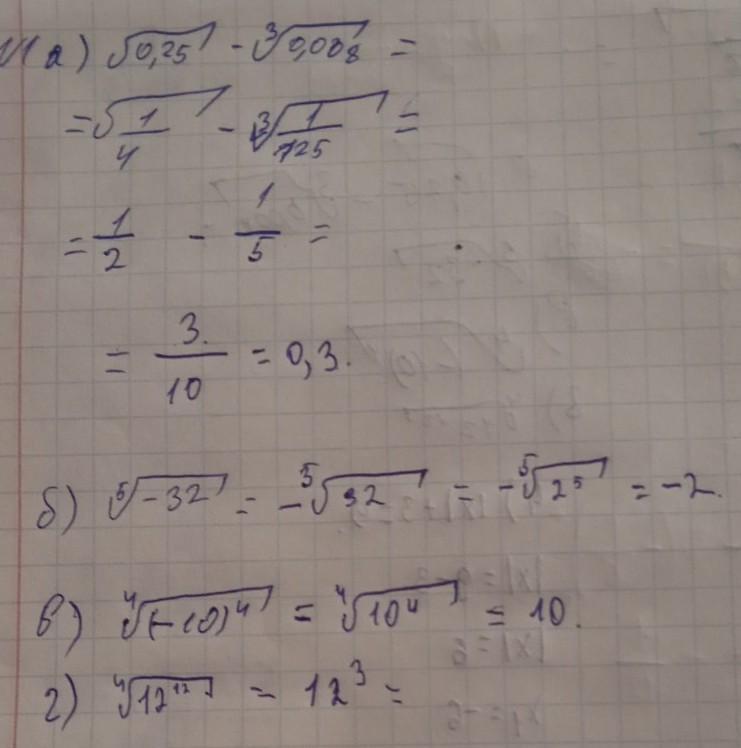 а) √0,25 - ∛0,008 =
= √(1/4) - ∛(1/125) =
= 1/2 - 1/5 =
= 3/10 = 0,3.
б) ⁵√-32 = -⁵√32 = -⁵√2⁵ = -2.
в) ⁴√(-10)⁴ = ⁴√10⁴ = 10.
г) ⁴√12¹² = 12³ =